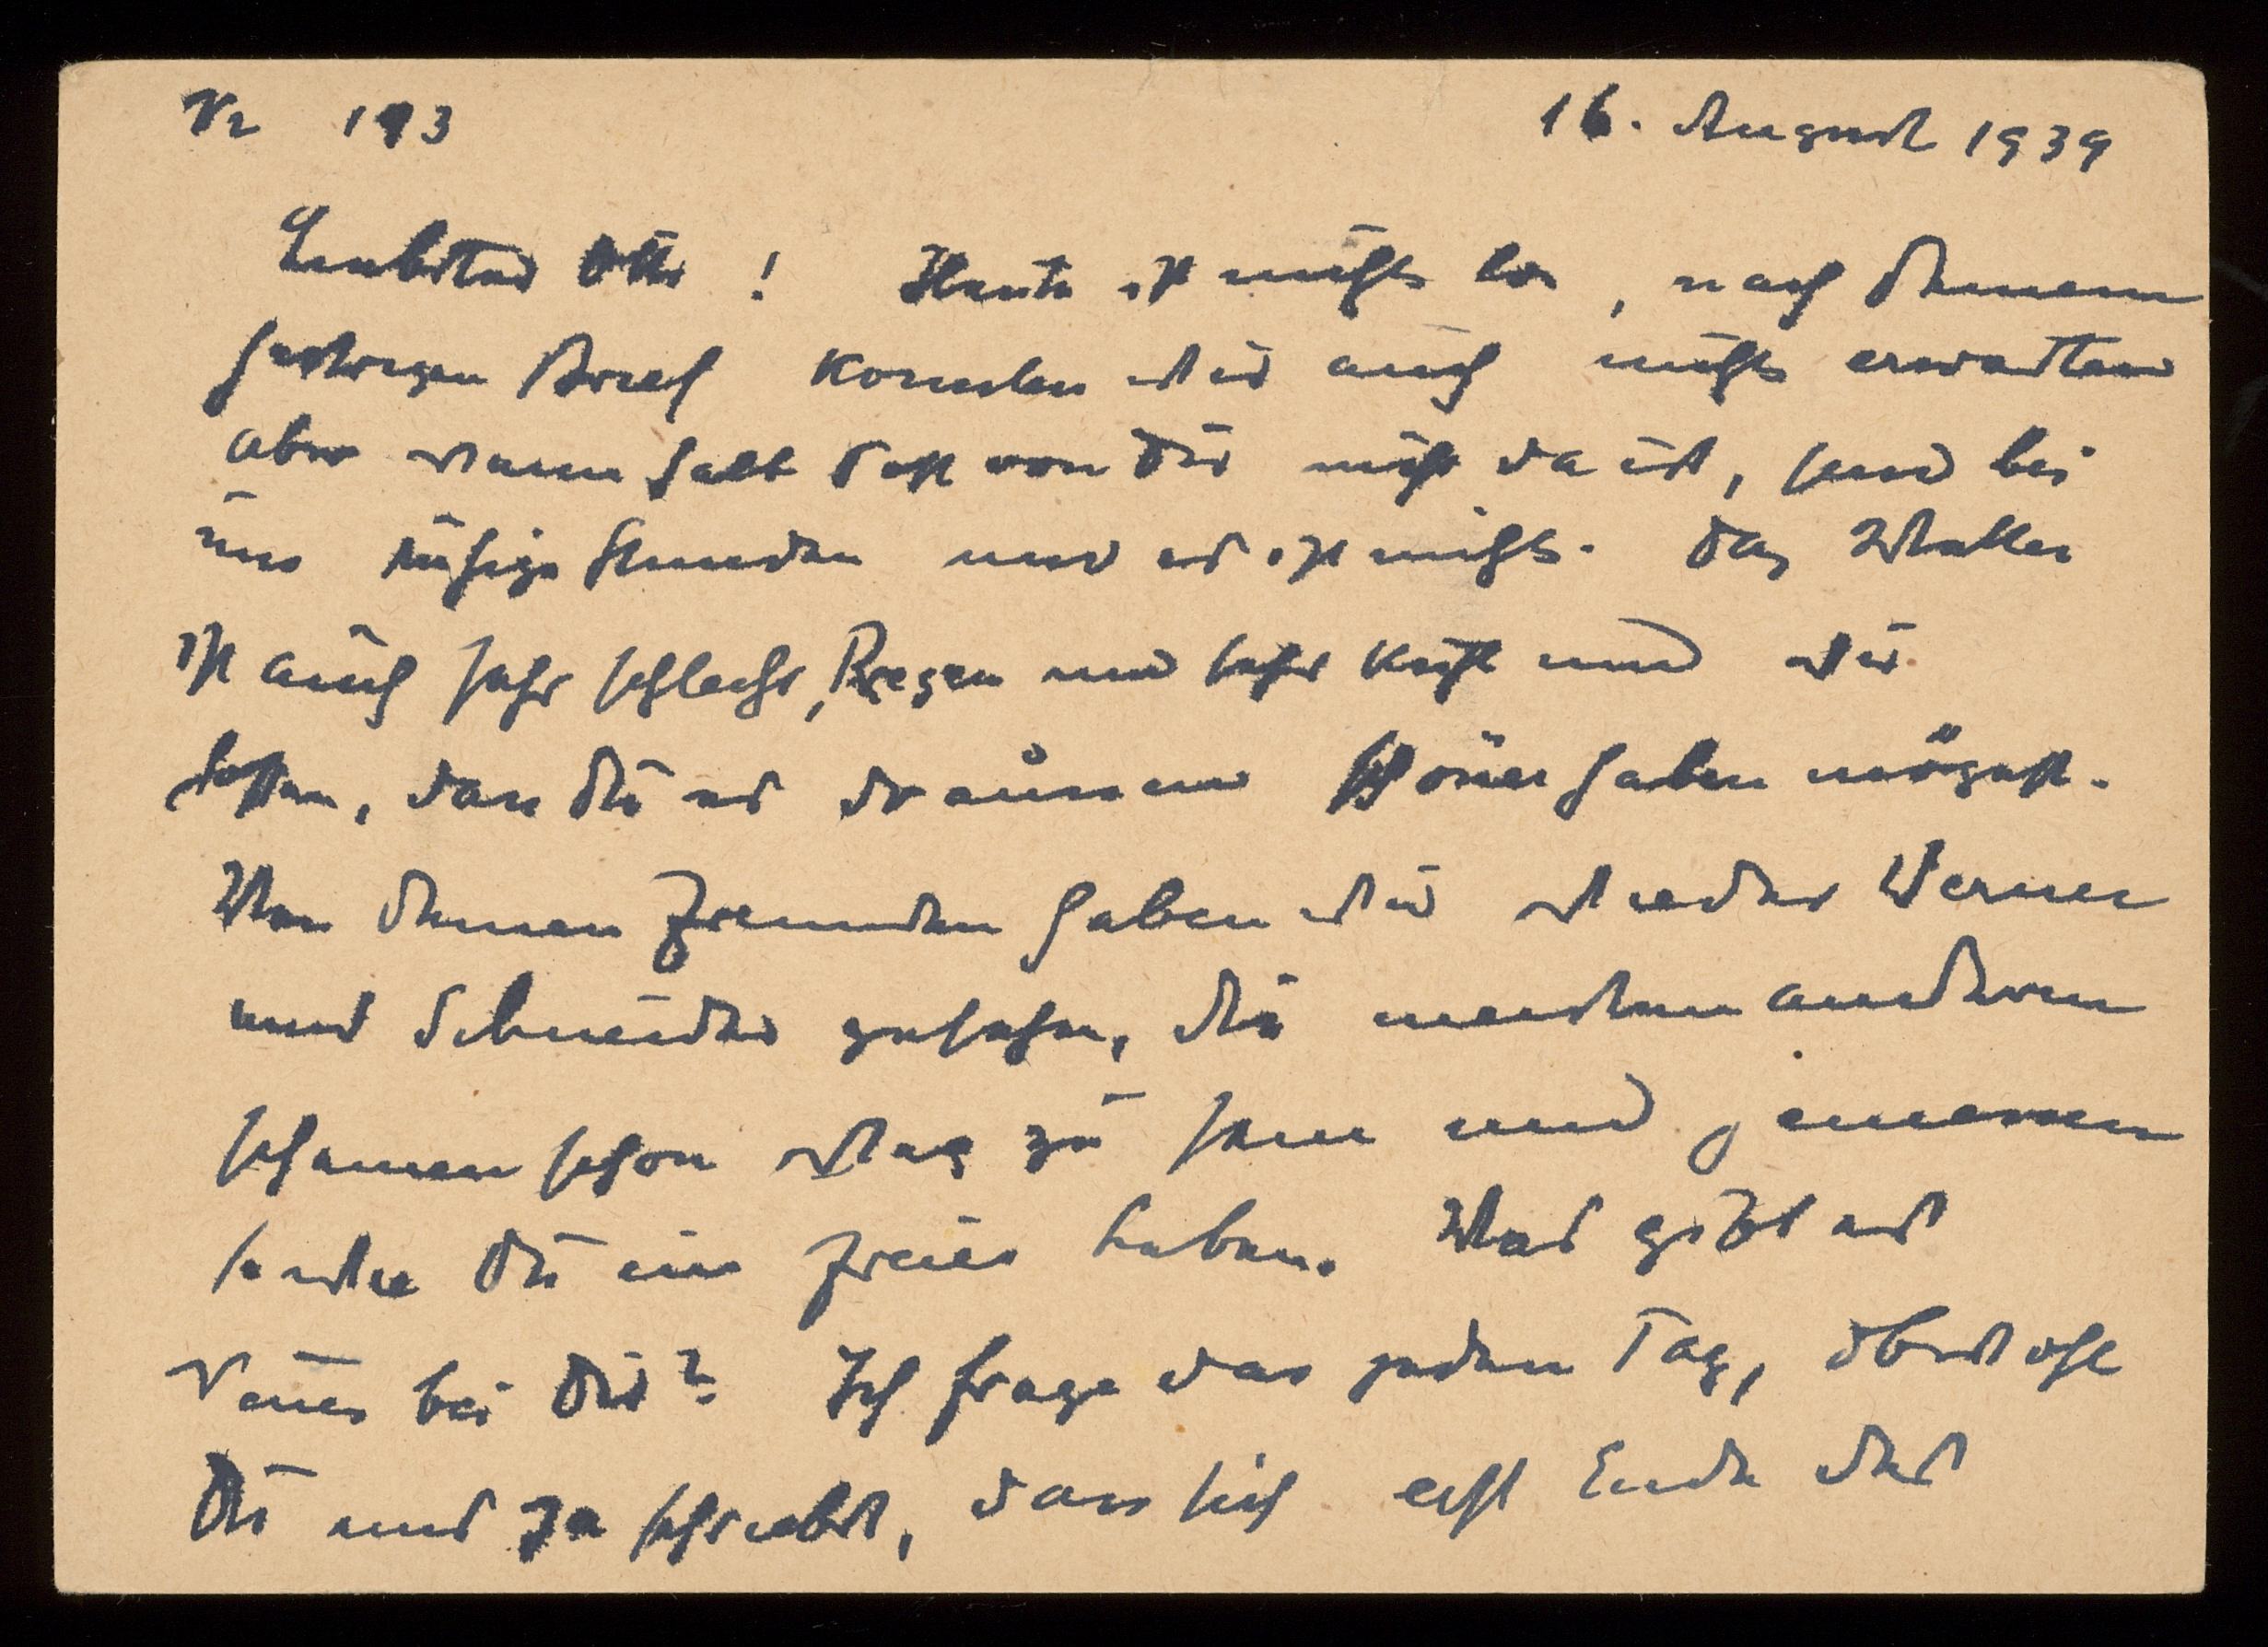 Nr 193 16. August 1939
Liebster Otto! Heute ist nichts los, nach Deinem
gestrigen Brief konnten wir auch nichts erwarten
aber wenn halt Post von Dir nicht da ist, sind bei
uns ruhige Stunden und es ist nichts. Das Wetter
ist auch sehr schlecht, Regen und sehr kühl und wir
hoffen, dass Du es draussen schöner haben mögest.
Von Deinen Freunden haben wir wieder Werner
und Schneider gesehen, die meisten anderen
scheinen schon weg zu sein und geniessen
so wie Du ein freies Leben. Was gibt es
Neues bei Dir? Ich frage das jeden Tag, obwohl
Du uns ja schriebst, dass sich erst Ende des